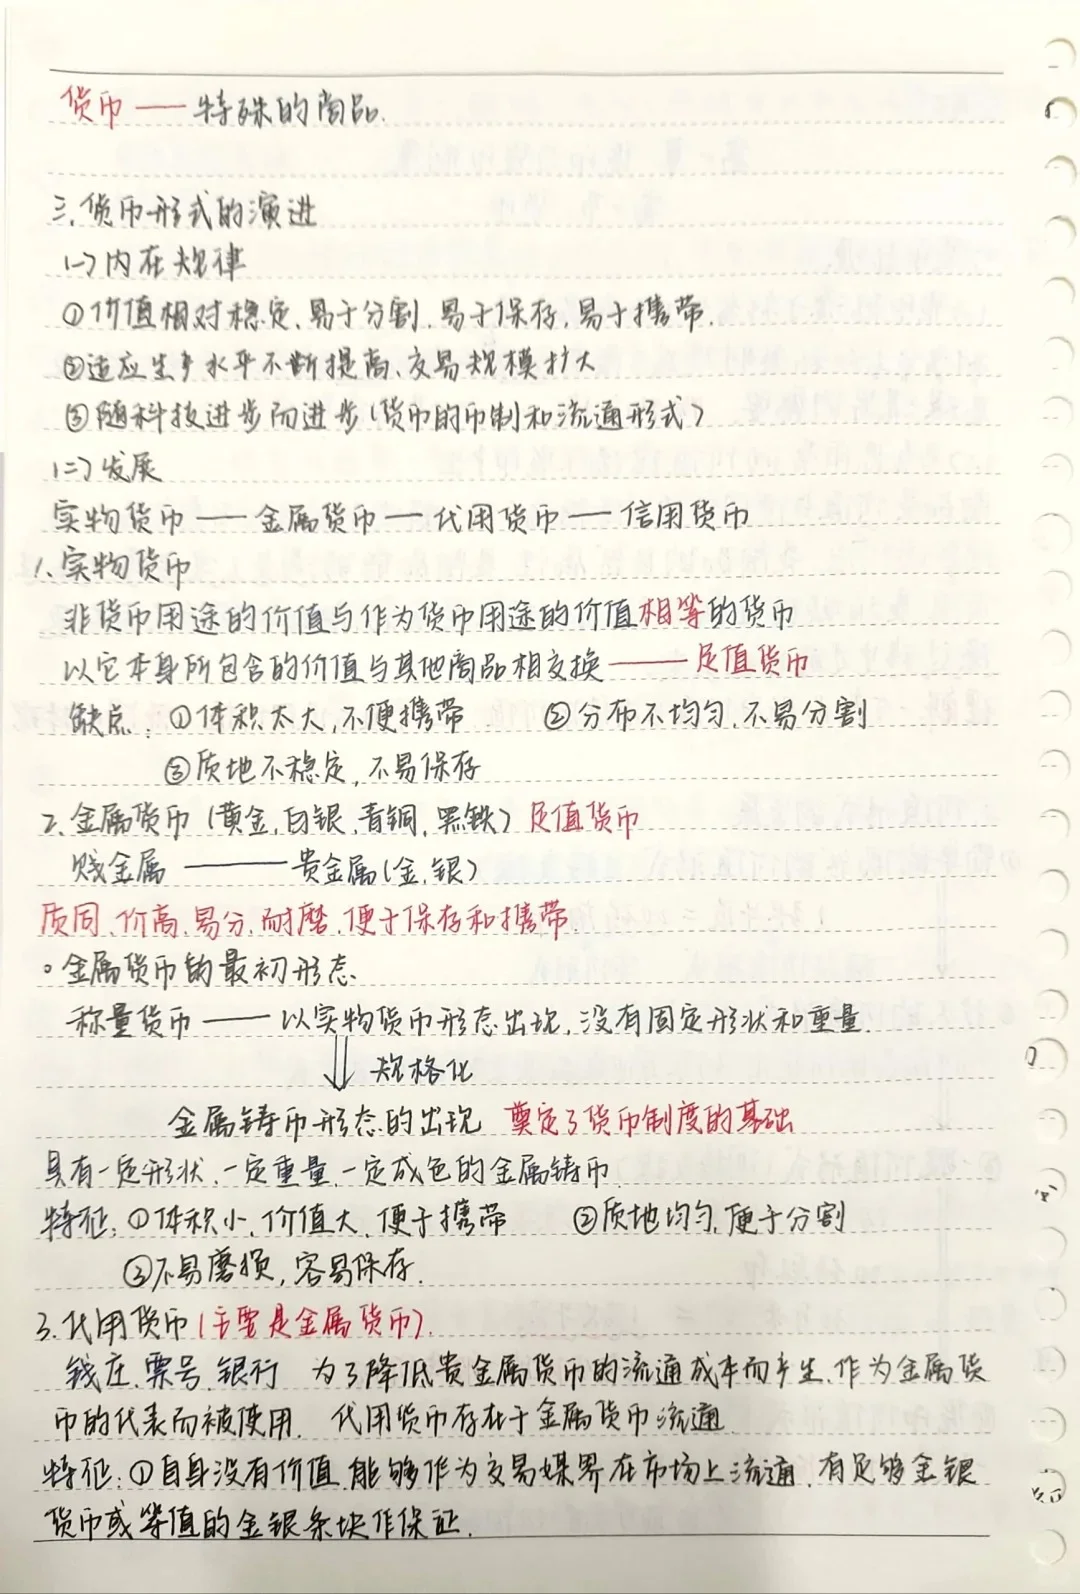 货币——特殊的商品.
三.货币形式的演进
(一)内在规律
①价值相对稳定、易于分割.易于保存,易于携带.
②适应生产水平不断提高、交易规模扩大
③随科技进步而进步(货币的币制和流通形式)
(二)发展
实物货币——金属货币—代用货币—信用货币
1.实物货币
非货币用途的价值与作为货币用途的价值相等的货币
以它本身所包含的价值与其他商品相交换——足值货币
缺点:①体积太大,不便携带 ②分布不均匀.不易分割
③质地不稳定,不易保存
2.金属货币(黄金,白银,青铜,黑铁)足值货币
贱金属——贵金属(金.银)
质同、价高、易分、耐磨、便于保存和携带.
。金属货币的最初形态.
称量货币——以实物货币形态出现,没有固定形状和重量.
⇓规格化
金属铸币形态的出现 奠定了货币制度的基础
具有一定形状、一定重量、一定成色的金属铸币.
特征:①体积小、价值大、便于携带 ②质地均匀,便于分割
③不易磨损,容易保存.
3.代用货币(主要是金属货币).
钱庄、票号、银行 为了降低贵金属货币的流通成本而产生.作为金属货
币的代表而被使用. 代用货币存在于金属货币流通
特征:①自身没有价值.能够作为交易媒界在市场上流通.有足够金银
货币或等值的金银条块作保证.